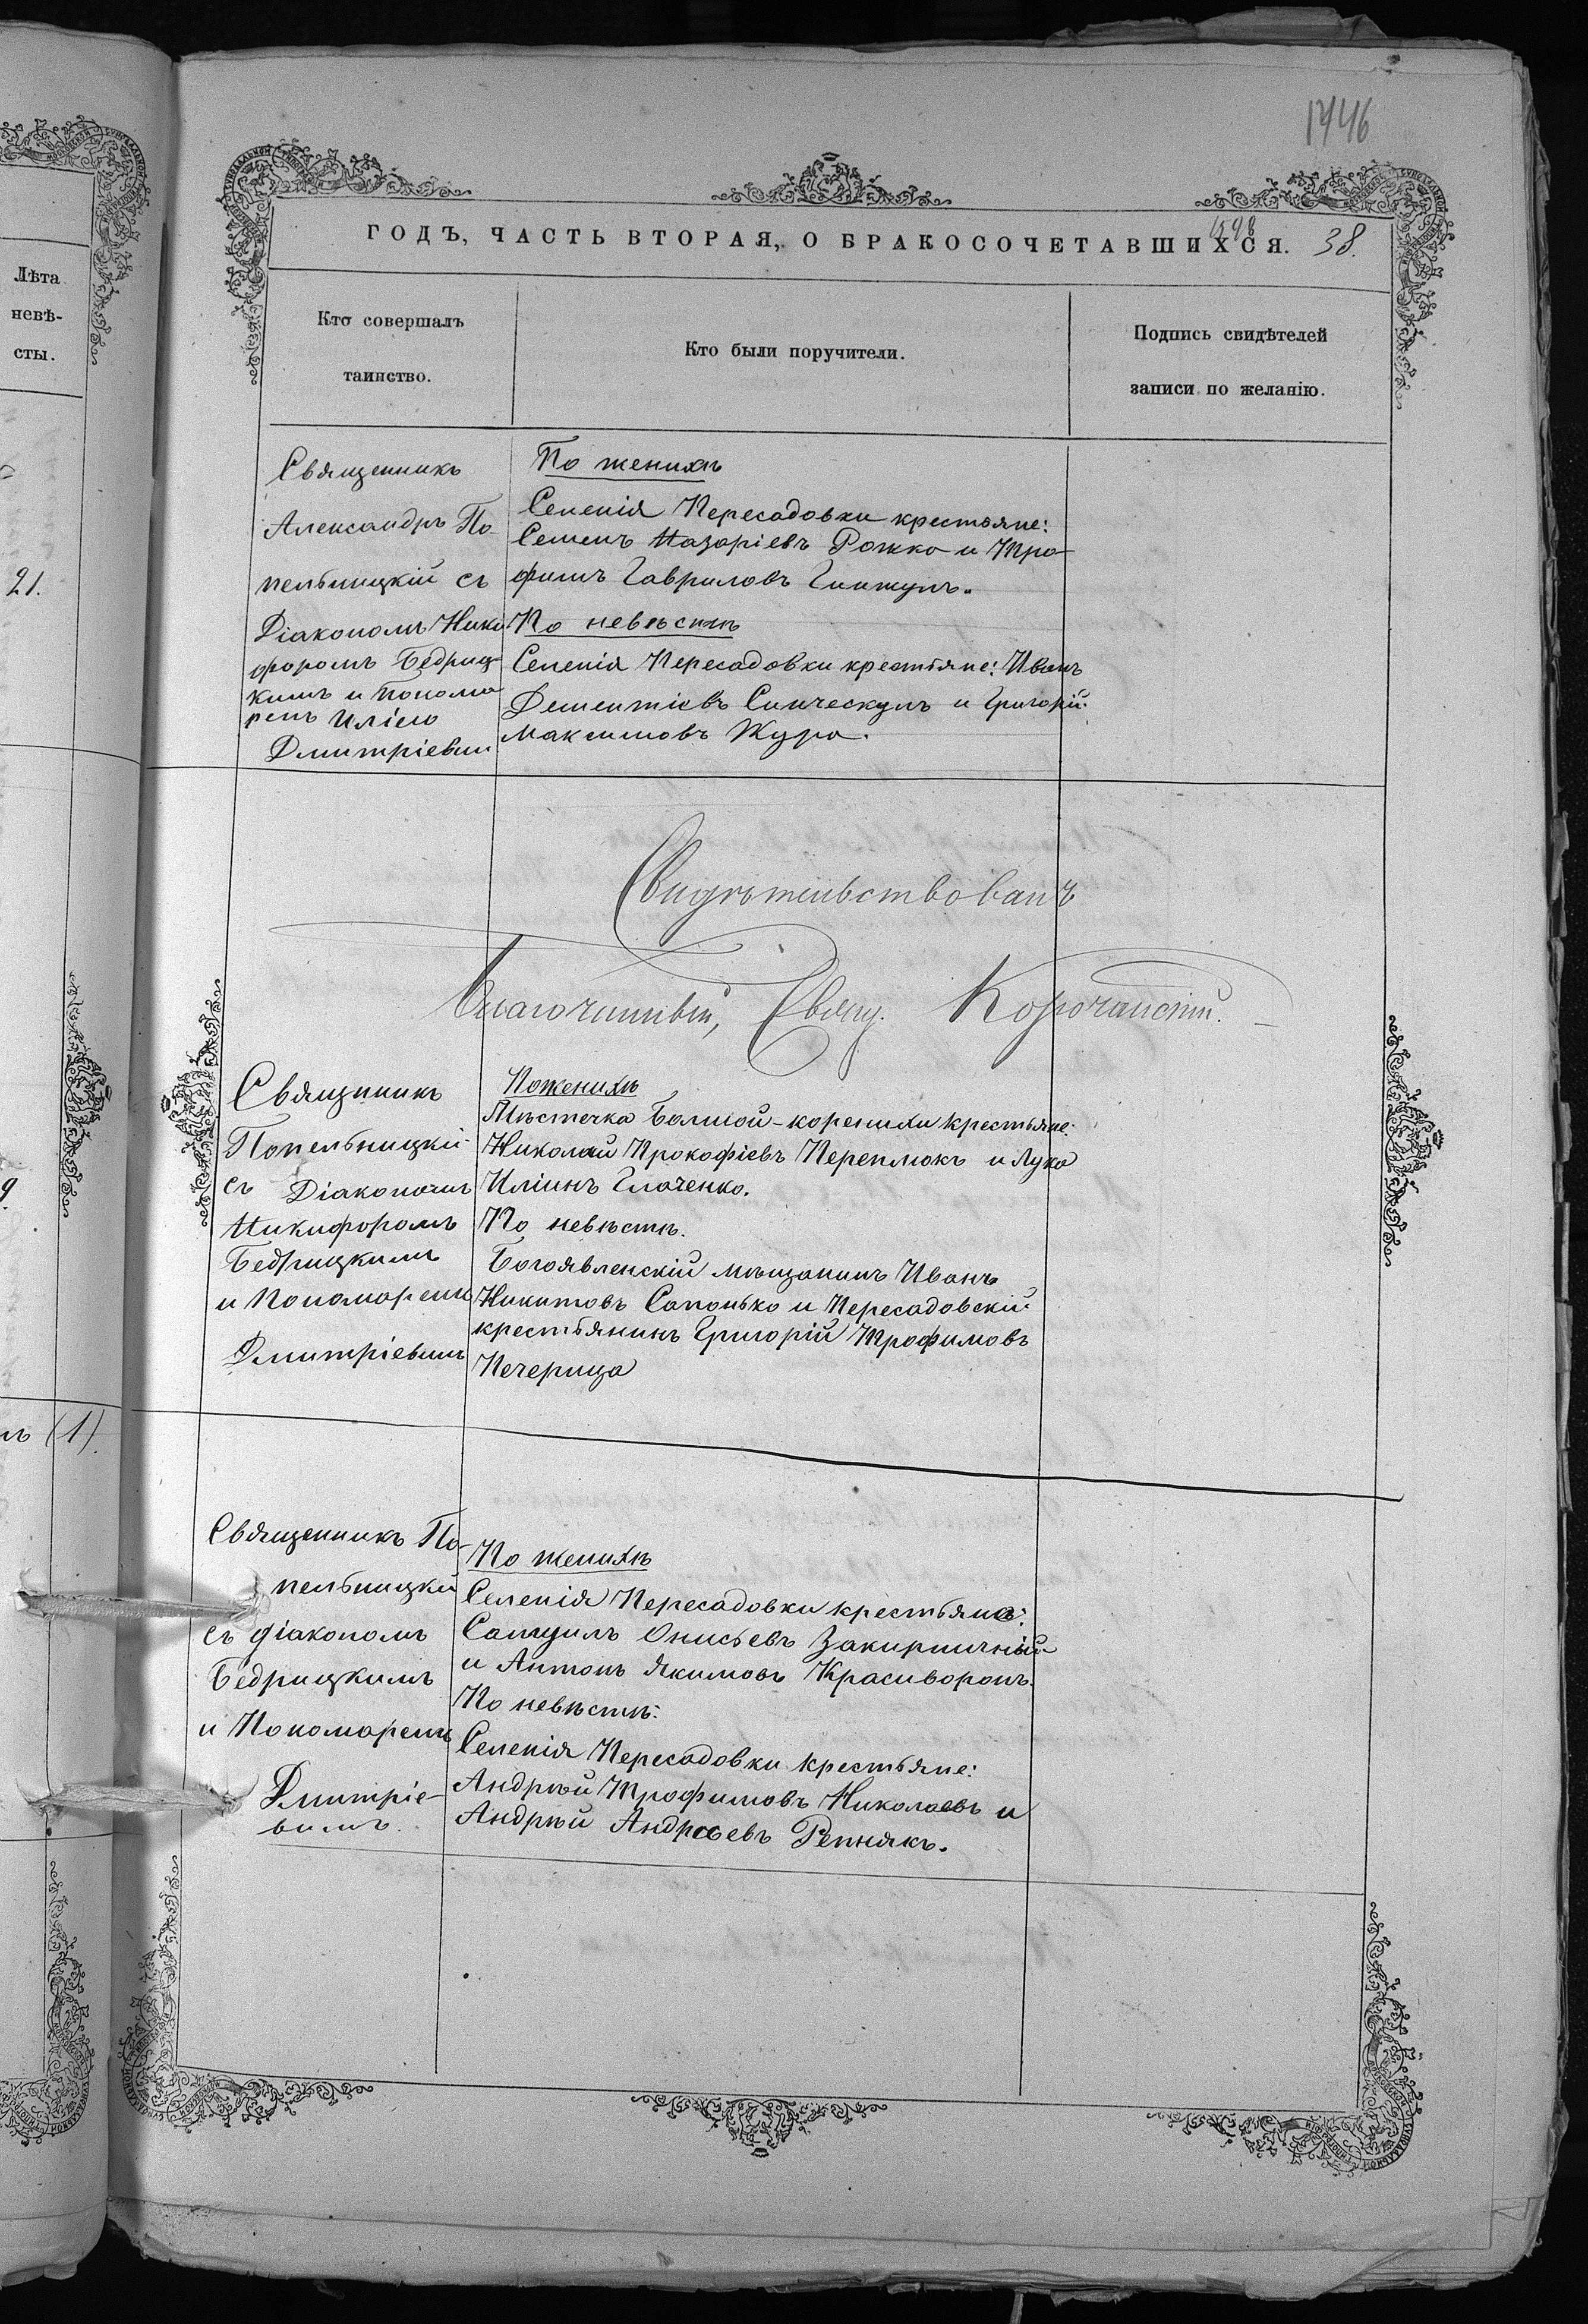 1446
Лѣта
невѣ-
сты.
21.
9.
(1).
ГОДЪ, ЧАСТЬ ВТОРАЯ, О БРАКОСОЧЕТАВШИХСЯ.
1598
38.
Кто совершалъ
таинство.
Кто были поручители.
Подпись свидѣтелей
записи по желанію.
Священникъ
Александръ По-
пельницкій съ
Діакономъ Ники
форомъ Бедриц-
кимъ и Понома
ремъ Иліею
Дмитріевым
По женихѣ
Селенія Пересадовки крестьяне:
Семенъ Назаріевъ Рожко и Тро-
фимъ Гавриловъ Гинжулъ.
По невѣстѣ
Селенія Пересадовки крестьяне: Иванъ
Дементіевъ Синческулъ и Григорій
Максимовъ Жура.
Свидѣтельствовалъ
Благочинный, Свящ. Корочанскій.
Священникъ
Попельницкій
съ Діакономъ
Никифоромъ
Бедрицкимъ
и Пономаремъ
Дмитріевымъ
По женихѣ
Мѣстечка Болшой-коренихи крестьяне:
Николай Прокофіевъ Перепліокъ и Лука
Иліинъ Глаченко.
По невѣстѣ.
Богоявленскій мѣщанинъ Иванъ
Никитовъ Сапонько и Пересадовскій
крестьянинъ Григорій Трофимовъ
Печерица
Священникъ По-
пельницкій
съ діакономъ
Бедрицкимъ
и Пономаремъ
Дмитріе-
вымъ.
По женихѣ
Селенія Пересадовки крестьяне:
Самуилъ Онисьевъ Закирпичный
и Антонъ Якимовъ Красиворонъ.
По невѣстѣ:
Селенія Пересадовки крестьяне:
Андрѣй Трофимовъ Николаевъ и
Андрѣй Андреевъ Репнякъ.